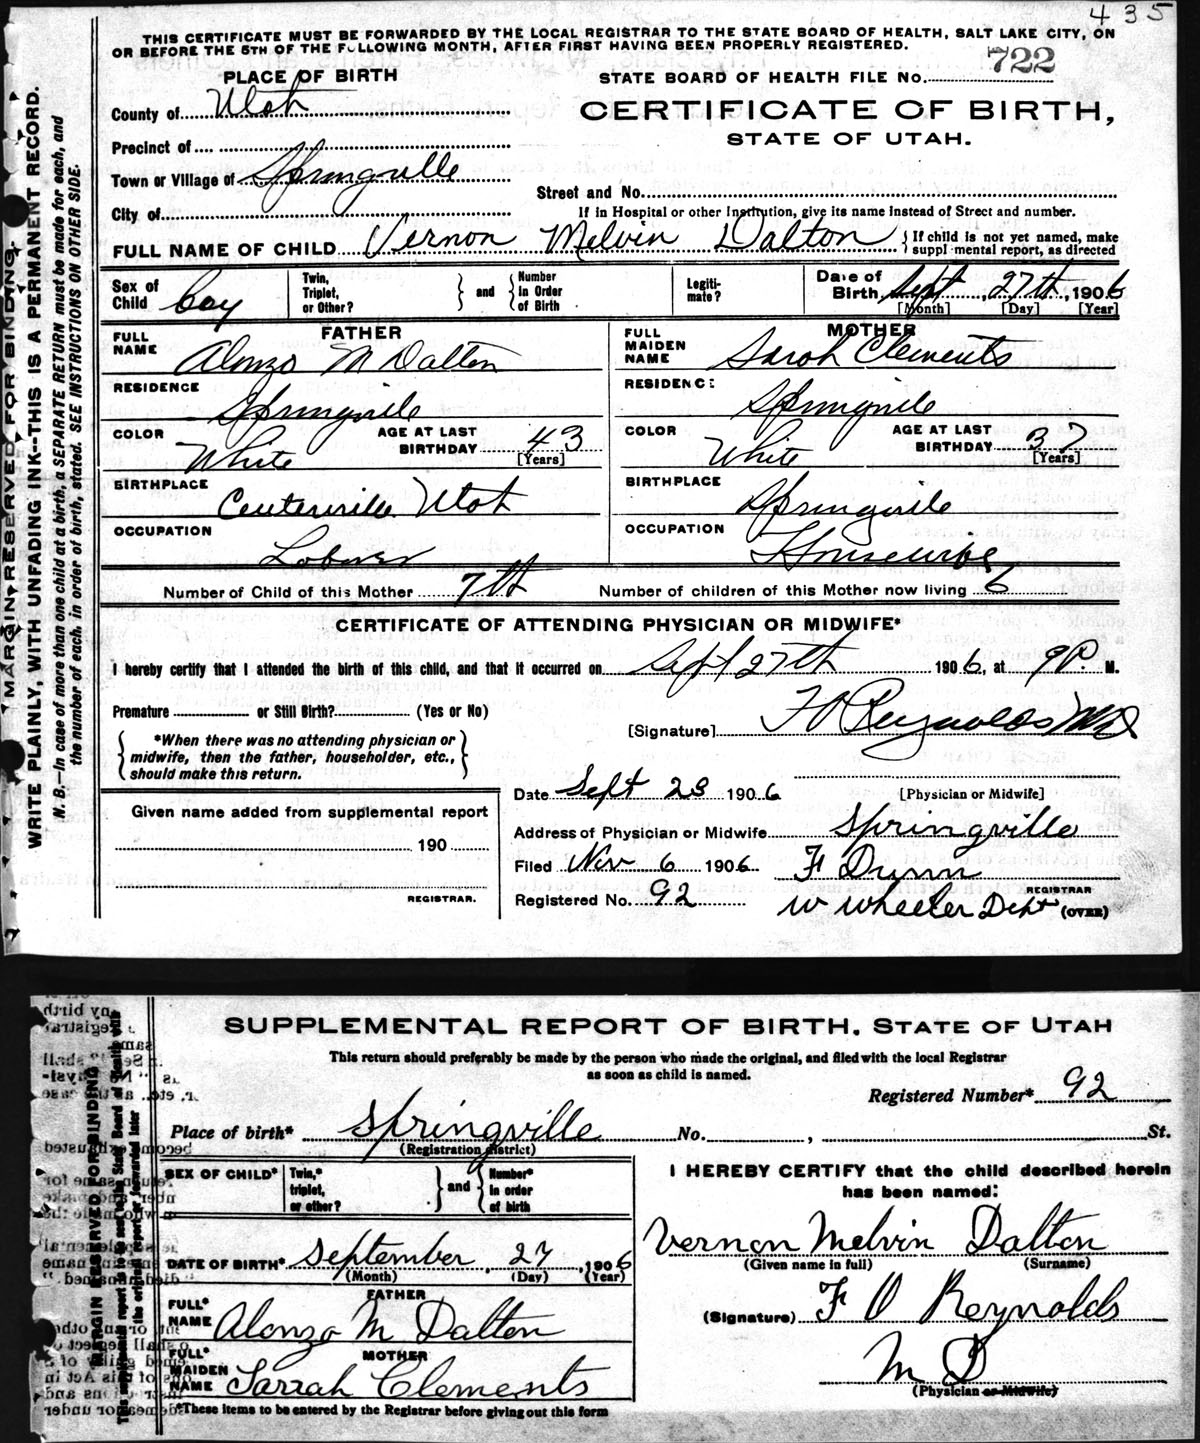 435
THIS CERTIFICATE MUST BE FORWARDED BY THE LOCAL REGISTRAR TO THE STATE BOARD OF HEALTH, SALT LAKE CITY, ON
OR BEFORE THE 5TH OF THE FOLLOWING MONTH, AFTER FIRST HAVING BEEN PROPERLY REGISTERED.
MARGIN RESERVED FOR BINDING.
WRITE PLAINLY, WITH UNFADING INK--THIS IS A PERMANENT RECORD.
N. B.—In case of more than one child at a birth, a SEPARATE RETURN must be made for each, and
the number of each, in order of birth, stated. SEE INSTRUCTIONS ON OTHER SIDE.
PLACE OF BIRTH
STATE BOARD OF HEALTH FILE No. 722
County of Utah
CERTIFICATE OF BIRTH,
STATE OF UTAH.
Precinct of
Town or Village of Springville
Street and No.
City of
If in Hospital or other Institution, give its name instead of Street and number.
FULL NAME OF CHILD Vernon Melvin Dalton } If child is not yet named, make
suppl mental report, as directed
Sex of Child boy
Twin, Triplet, or Other? } and { Number in Order of Birth
Legiti-mate?
Date of Birth Sept 27th, 1906
[Month] [Day] [Year]
FATHER
FULL NAME Alonzo M Dalton
MOTHER
FULL MAIDEN NAME Sarah Clements
RESIDENCE Springville
RESIDENCE Springville
COLOR White AGE AT LAST BIRTHDAY 43 [Years]
COLOR White AGE AT LAST BIRTHDAY 37 [Years]
BIRTHPLACE Centerville Utah
BIRTHPLACE Springville
OCCUPATION Laborer
OCCUPATION Housewife
Number of Child of this Mother 7th Number of children of this Mother now living 6
CERTIFICATE OF ATTENDING PHYSICIAN OR MIDWIFE*
I hereby certify that I attended the birth of this child, and that it occurred on Sept 27th 1906, at 9 P. M.
Premature or Still Birth? (Yes or No)
[Signature] F O Reynolds MD
{ *When there was no attending physician or
midwife, then the father, householder, etc.,
should make this return. }
Date Sept 28 1906 [Physician or Midwife]
Given name added from supplemental report
190
REGISTRAR.
Address of Physician or Midwife Springville
Filed Nov 6 1906 F Dunn
REGISTRAR
Registered No. 92 W Wheeler Dept (OVER)
MARGIN RESERVED FOR BINDING
SUPPLEMENTAL REPORT OF BIRTH. STATE OF UTAH
This return should preferably be made by the person who made the original, and filed with the local Registrar
as soon as child is named.
Registered Number* 92
Place of birth* Springville No. , St.
(Registration district)
SEX OF CHILD*
Twin,* triplet, or other? } and { Number* in order of birth
I HEREBY CERTIFY that the child described herein
has been named:
Vernon Melvin Dalton
(Given name in full) (Surname)
DATE OF BIRTH* September, 27, 1906
(Month) (Day) (Year)
FATHER
FULL* NAME Alonzo M Dalton
(Signature) F O Reynolds
M D
(Physician or Midwife)
MOTHER
FULL* MAIDEN NAME Sarrah Clements
*These items to be entered by the Registrar before giving out this form